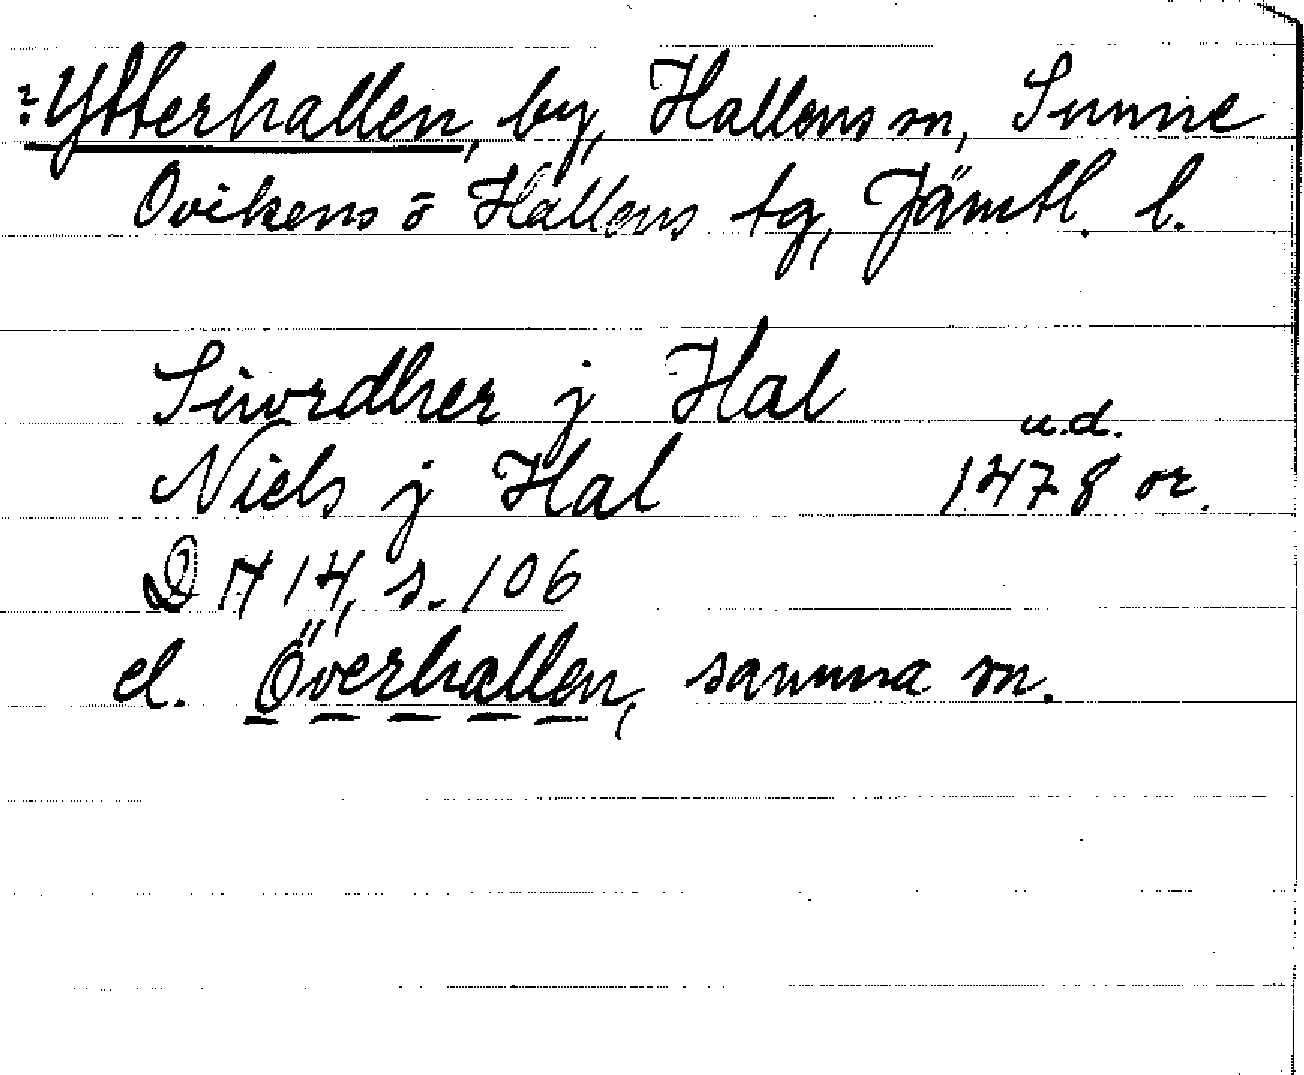 ?Ytterhallen, by, Hallens sn, Sunne
Ovikens o Hallens tg, Jämtl. l.
Siwrdher j Hal
u.d.
Niels j Hal 1478 or.
D N 14, s. 106
el. Överhallen, samma sn.